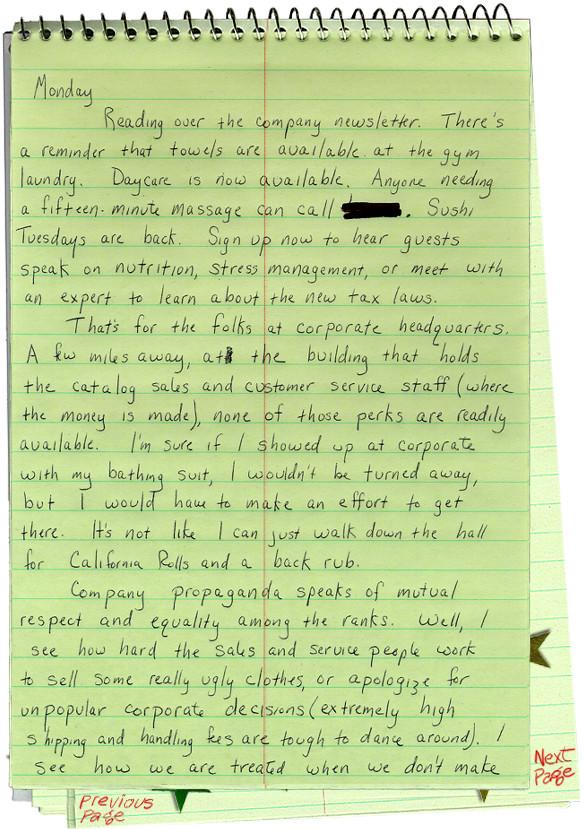 Monday
Reading over the company newsletter. There's
a reminder that towels are available at the gym
laundry. Daycare is now available. Anyone needing
a fifteen-minute massage can call . Sushi
Tuesdays are back. Sign up now to hear guests
speak on nutrition, stress management, or meet with
an expert to learn about the new tax laws.
That's for the folks at corporate headquarters.
A few miles away, at the building that holds
the catalog sales and customer service staff (where
the money is made), none of those perks are readily
available. I'm sure if I showed up at corporate
with my bathing suit, I wouldn't be turned away,
but I would have to make an effort to get
there. It's not like I can just walk down the hall
for California Rolls and a back rub.
Company propaganda speaks of mutual
respect and equality among the ranks. Well, I
see how hard the sales and service people work
to sell some really ugly clothes, or apologize for
unpopular corporate decisions (extremely high
shipping and handling fees are tough to dance around). I
see how we are treated when we don't make
Next
Page
Previous
Page